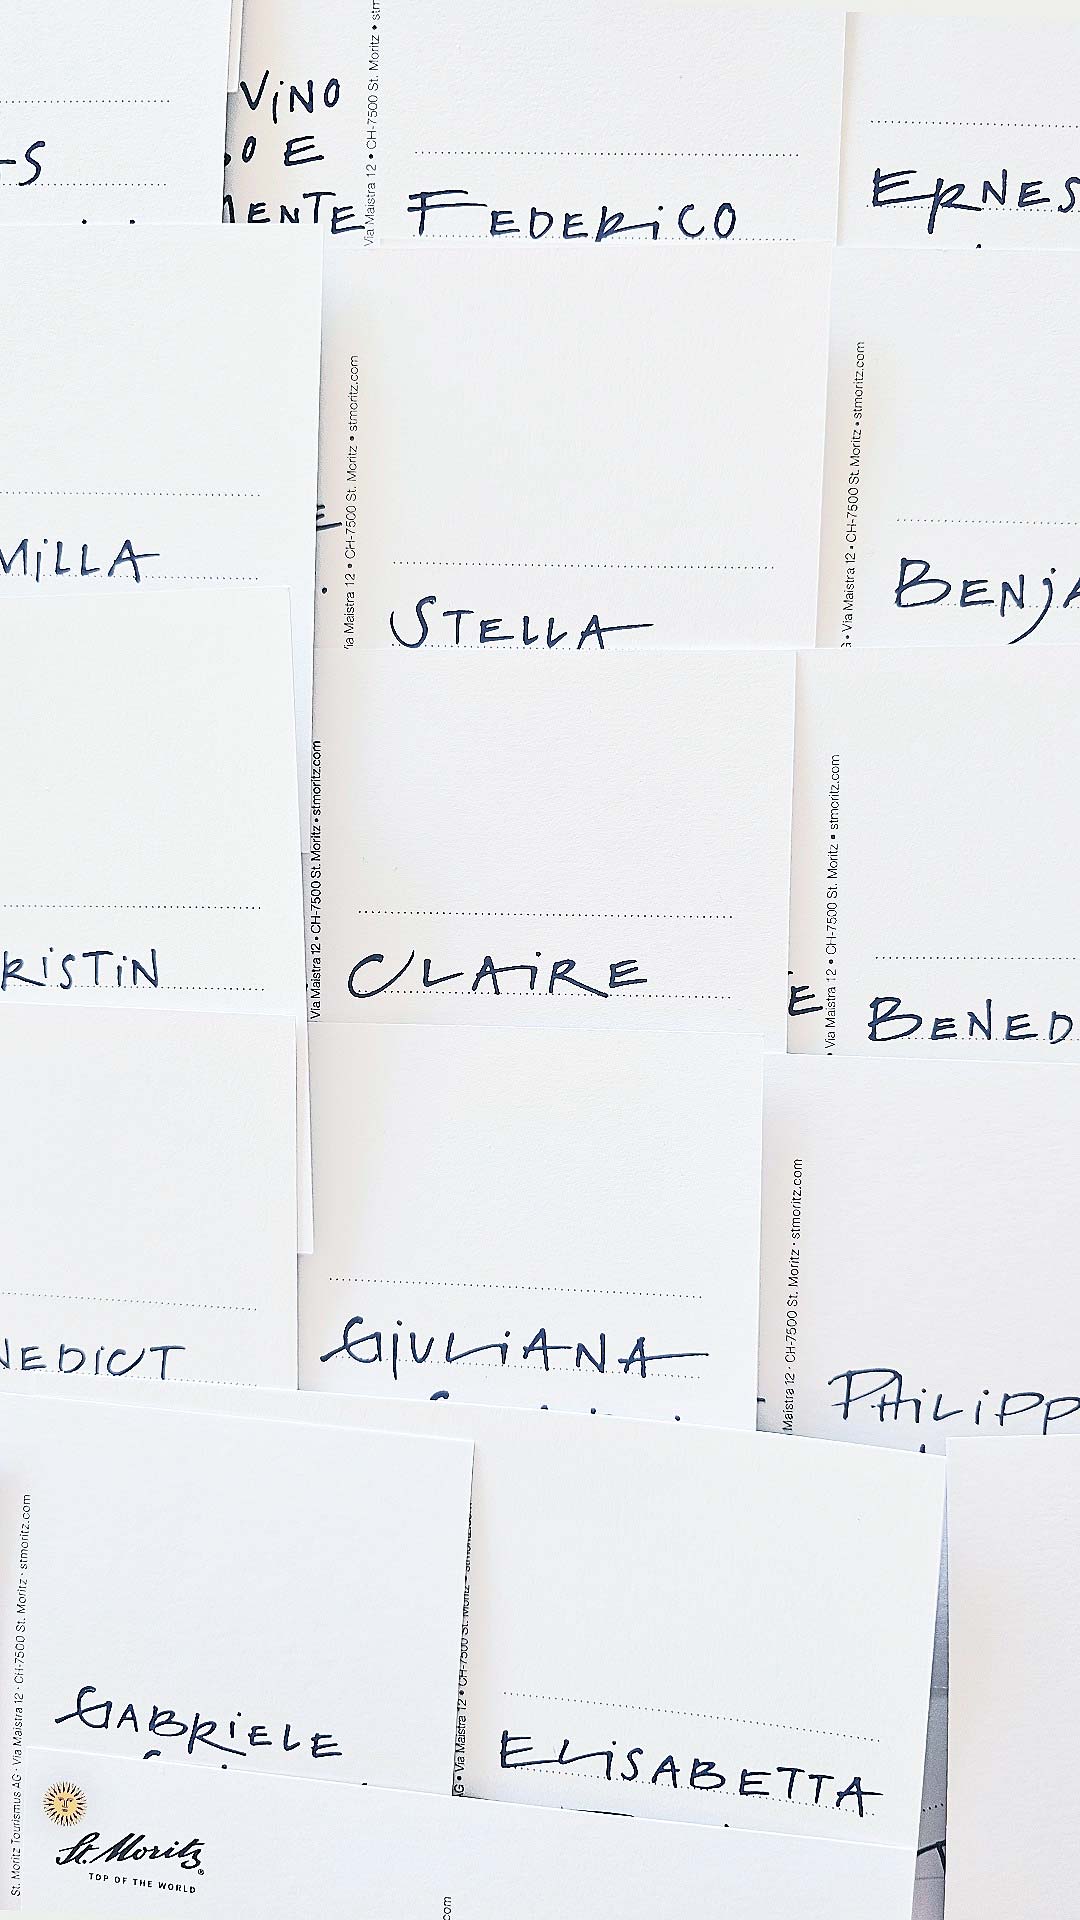 ViNO
O E
MENTE
St. Moritz
Via Maistra 12 • CH-7500 St. Moritz •
FEDERiCO
ERNES
MiLLA
Via Maistra 12 • CH-7500 St. Moritz • stmoritz.com
STELLA
• Via Maistra 12 • CH-7500 St. Moritz • stmoritz.com
BENJA
RiSTiN
Via Maistra 12 • CH-7500 St. Moritz • stmoritz.com
CLAiRE
E
• Via Maistra 12 • CH-7500 St. Moritz • stmoritz.com
BENED
NEDICT
GiULiANA
Maistra 12 • CH-7500 St. Moritz • stmoritz.com
PHiLiPP
St. Moritz Tourismus AG • Via Maistra 12 • CH-7500 St. Moritz • stmoritz.com
GABRiELE
AG • Via Maistra 12 • CH-7500 St. Moritz • stmoritz.com
ELiSABETTA
St. Moritz®
TOP OF THE WORLD
com